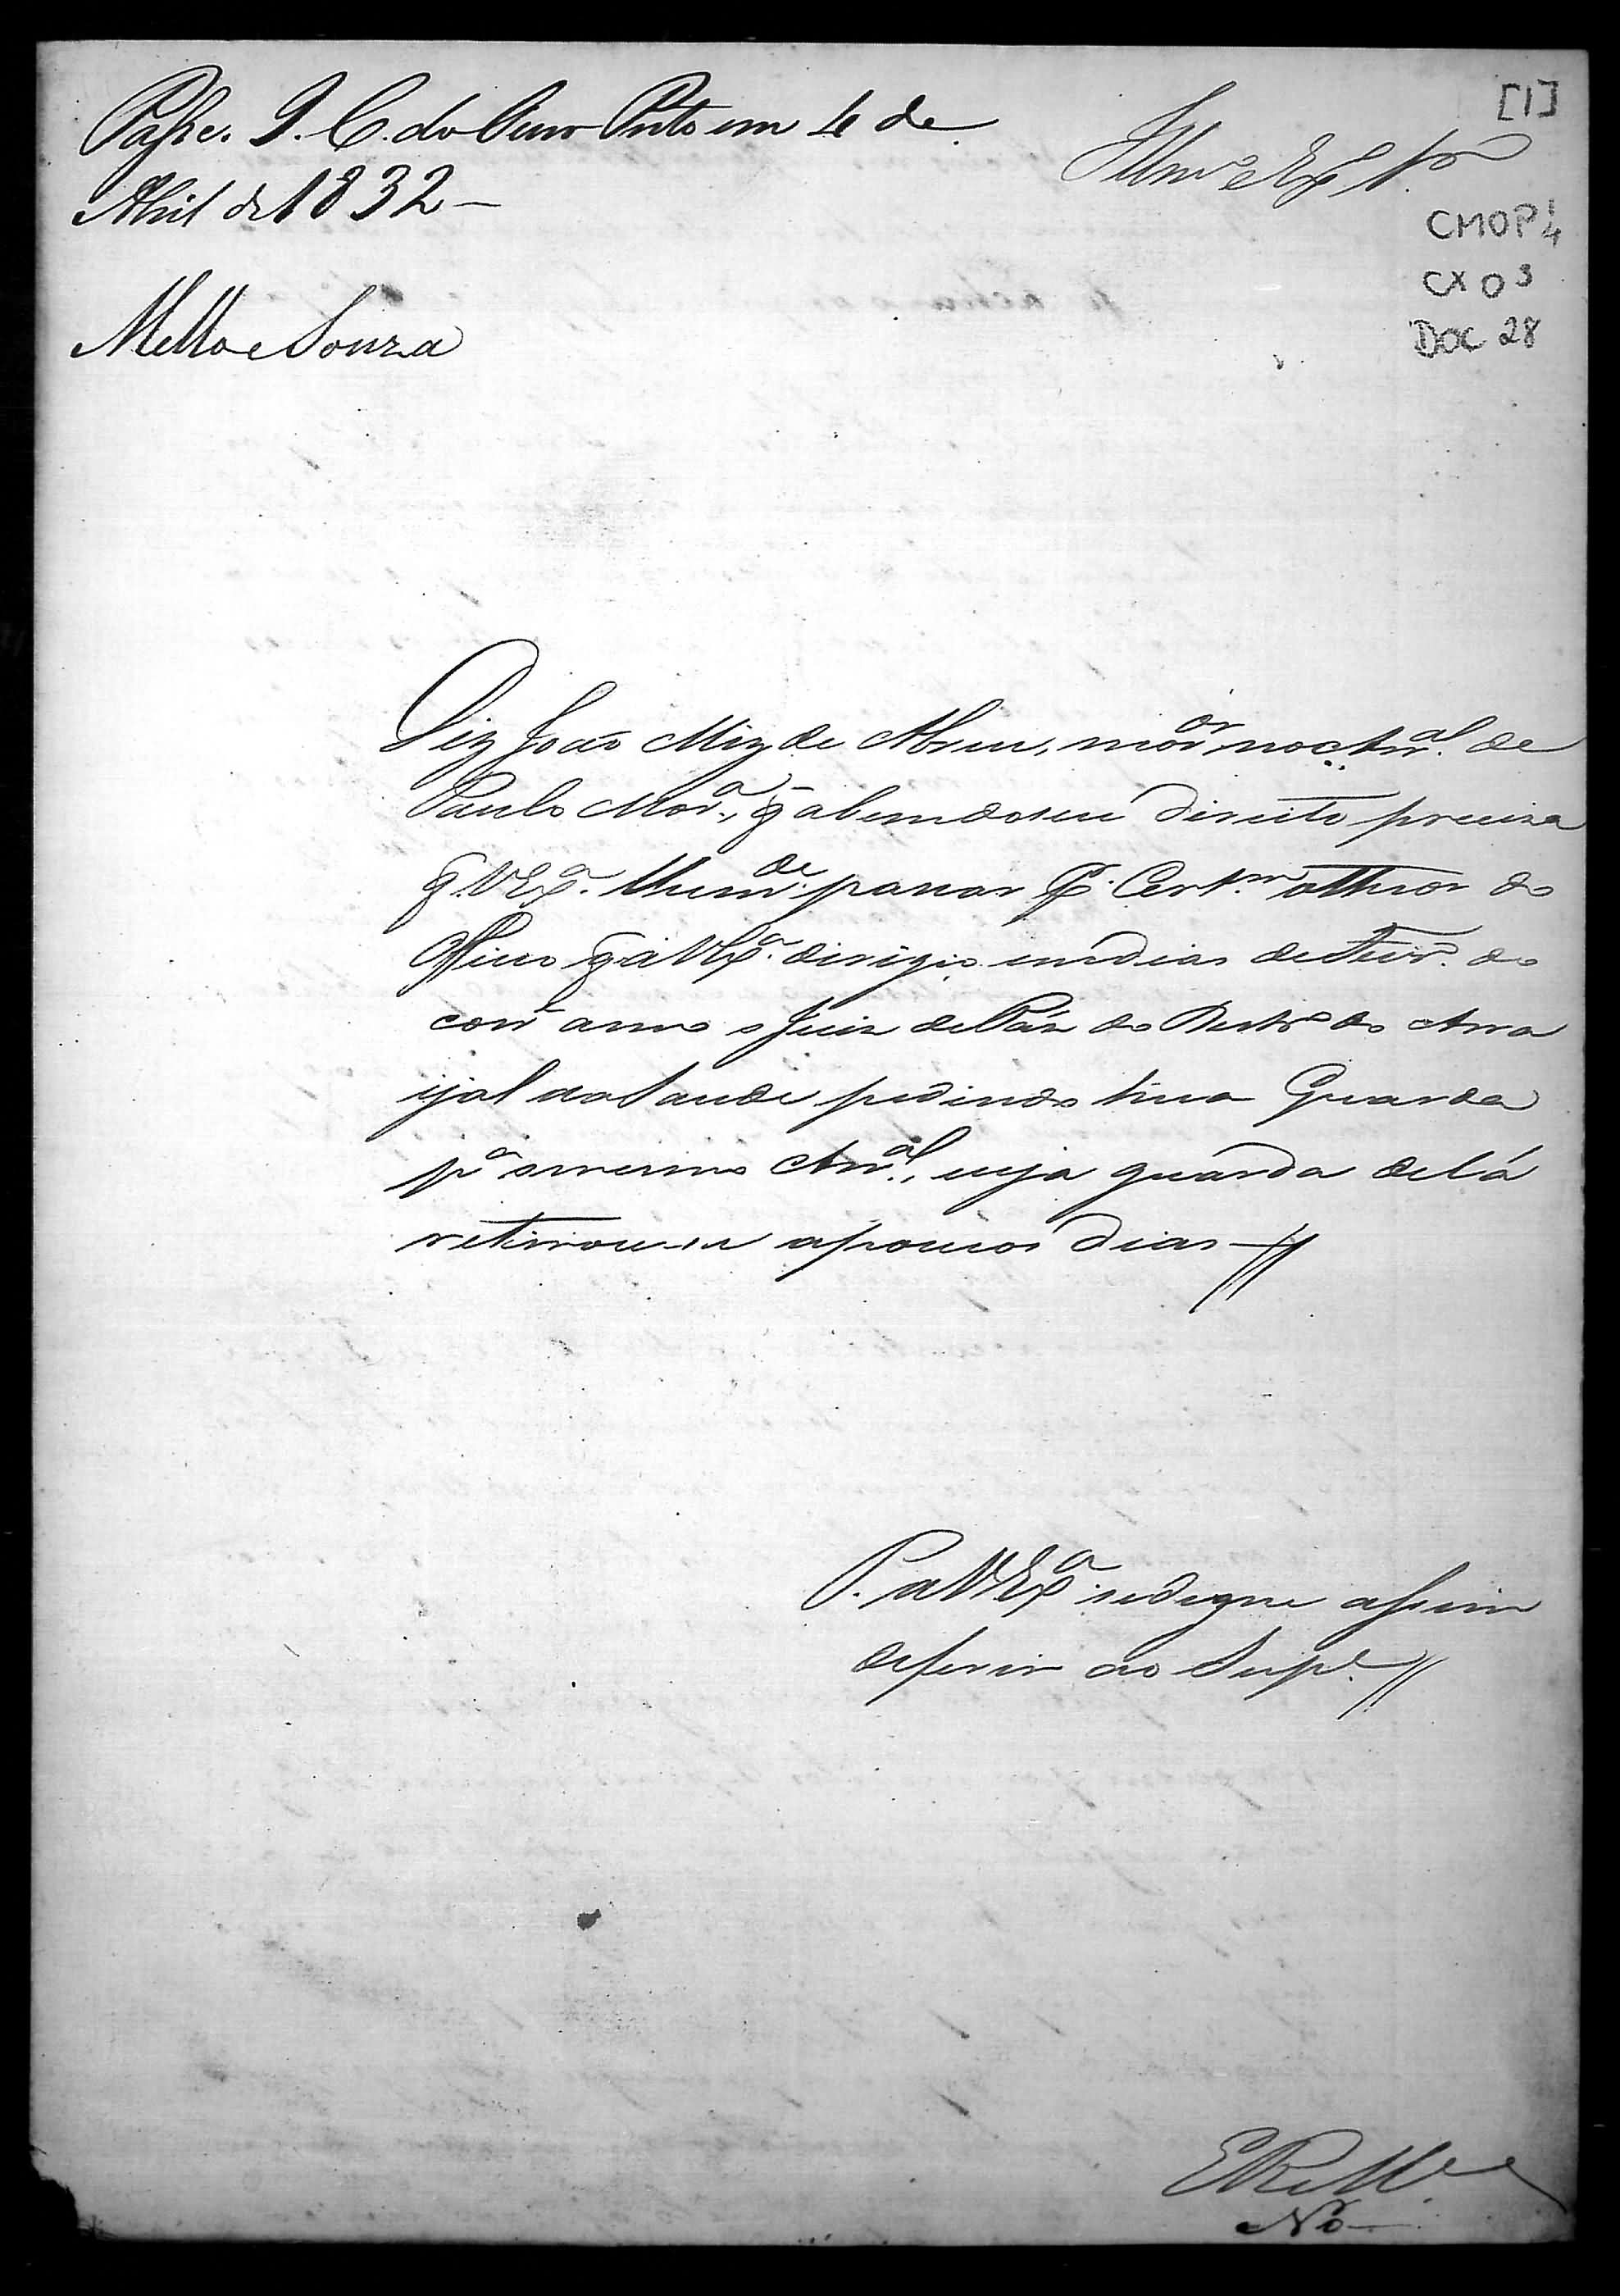 Passe. I. C. do Ouro Preto em 4 de
Abril de 1832 –
Mello e Souza
[1]
Illmo e Exmo Sr
CMOP 1/4
CX 03
DOC 28
Diz João Miz de Abreu, mor no Arral. de
Paulo Mora., q̃ abem doseu direito precisa
q̃ VExa. Mande. passar P. Certm otheor do
Officio q̃ a VExa. dirigio em dias de Fevr. do
corre anno o Juiz de Páz do Destro do Arra
yal da Saude pedindo hua Guarda
pa o mesmo Arral., cuja guarda de lá
retirou-se a poucos dias //
P. a VExa. se digne assim
deferir ao Supe. //
E R Mce
No